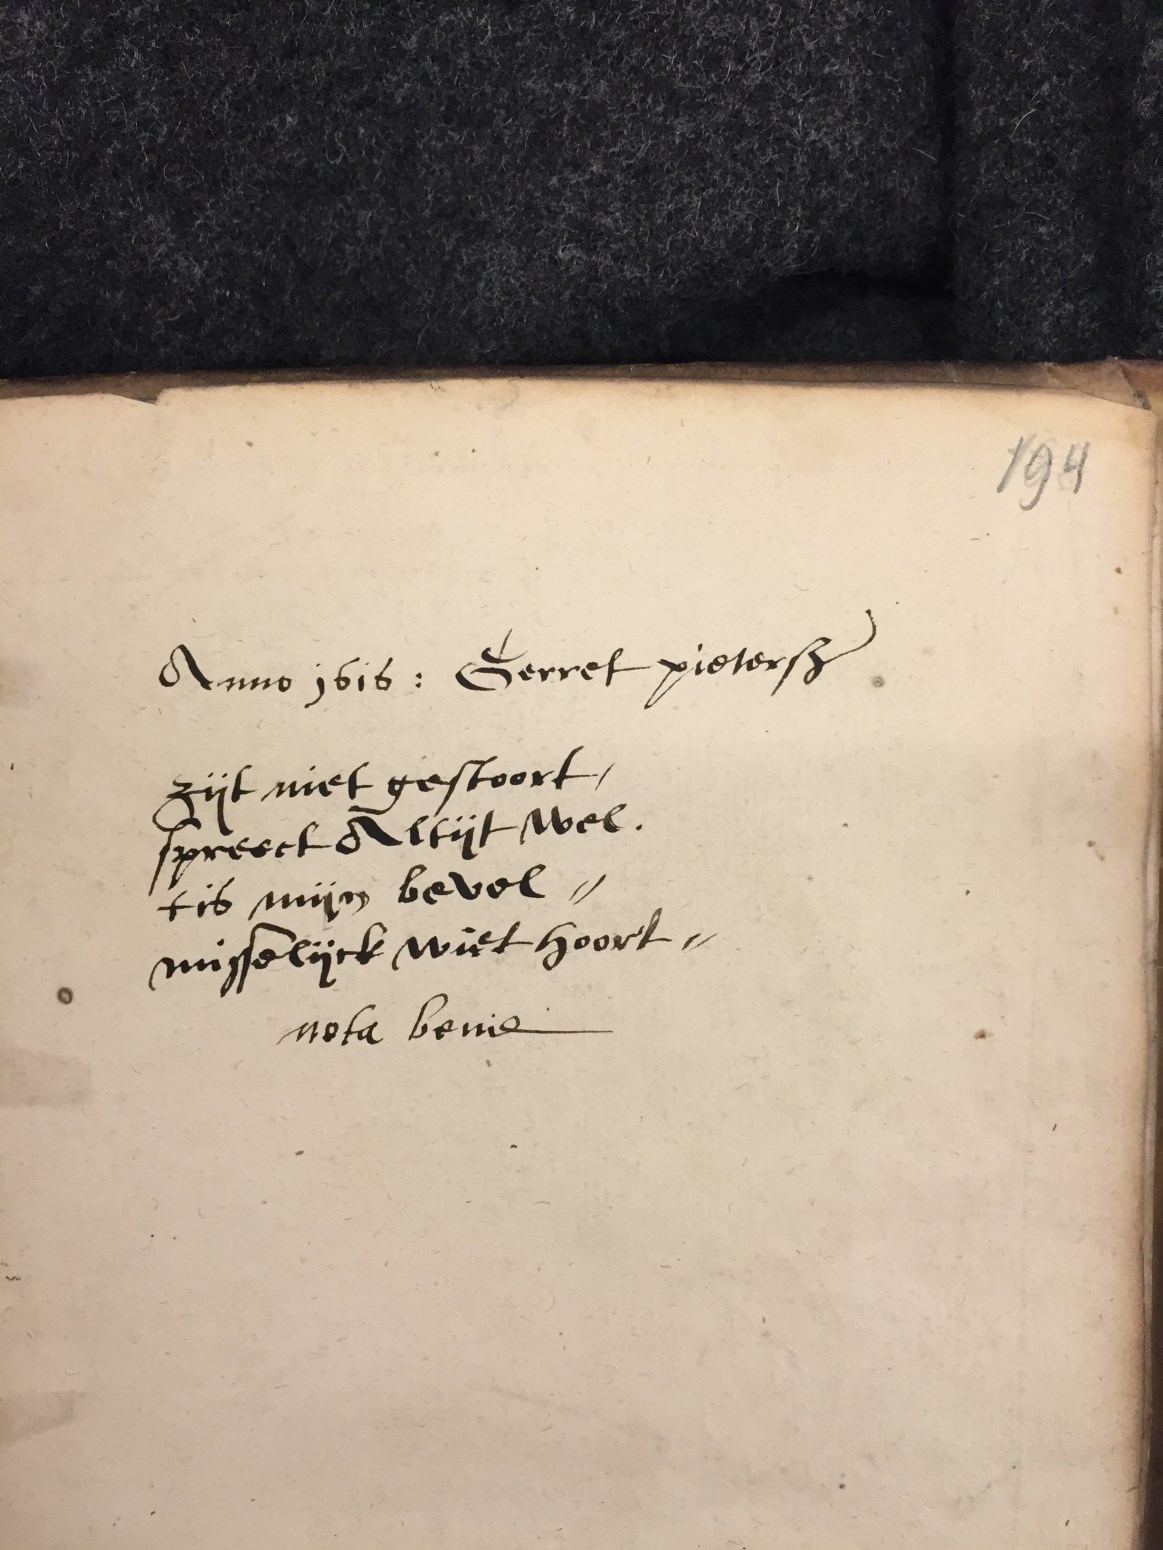 194
Anno 1616: Gerret pietersz
zijt niet gestoort /
spreect Altijt wel.
tis mijn bevel //
misselijck wiet hoort //
nota bene